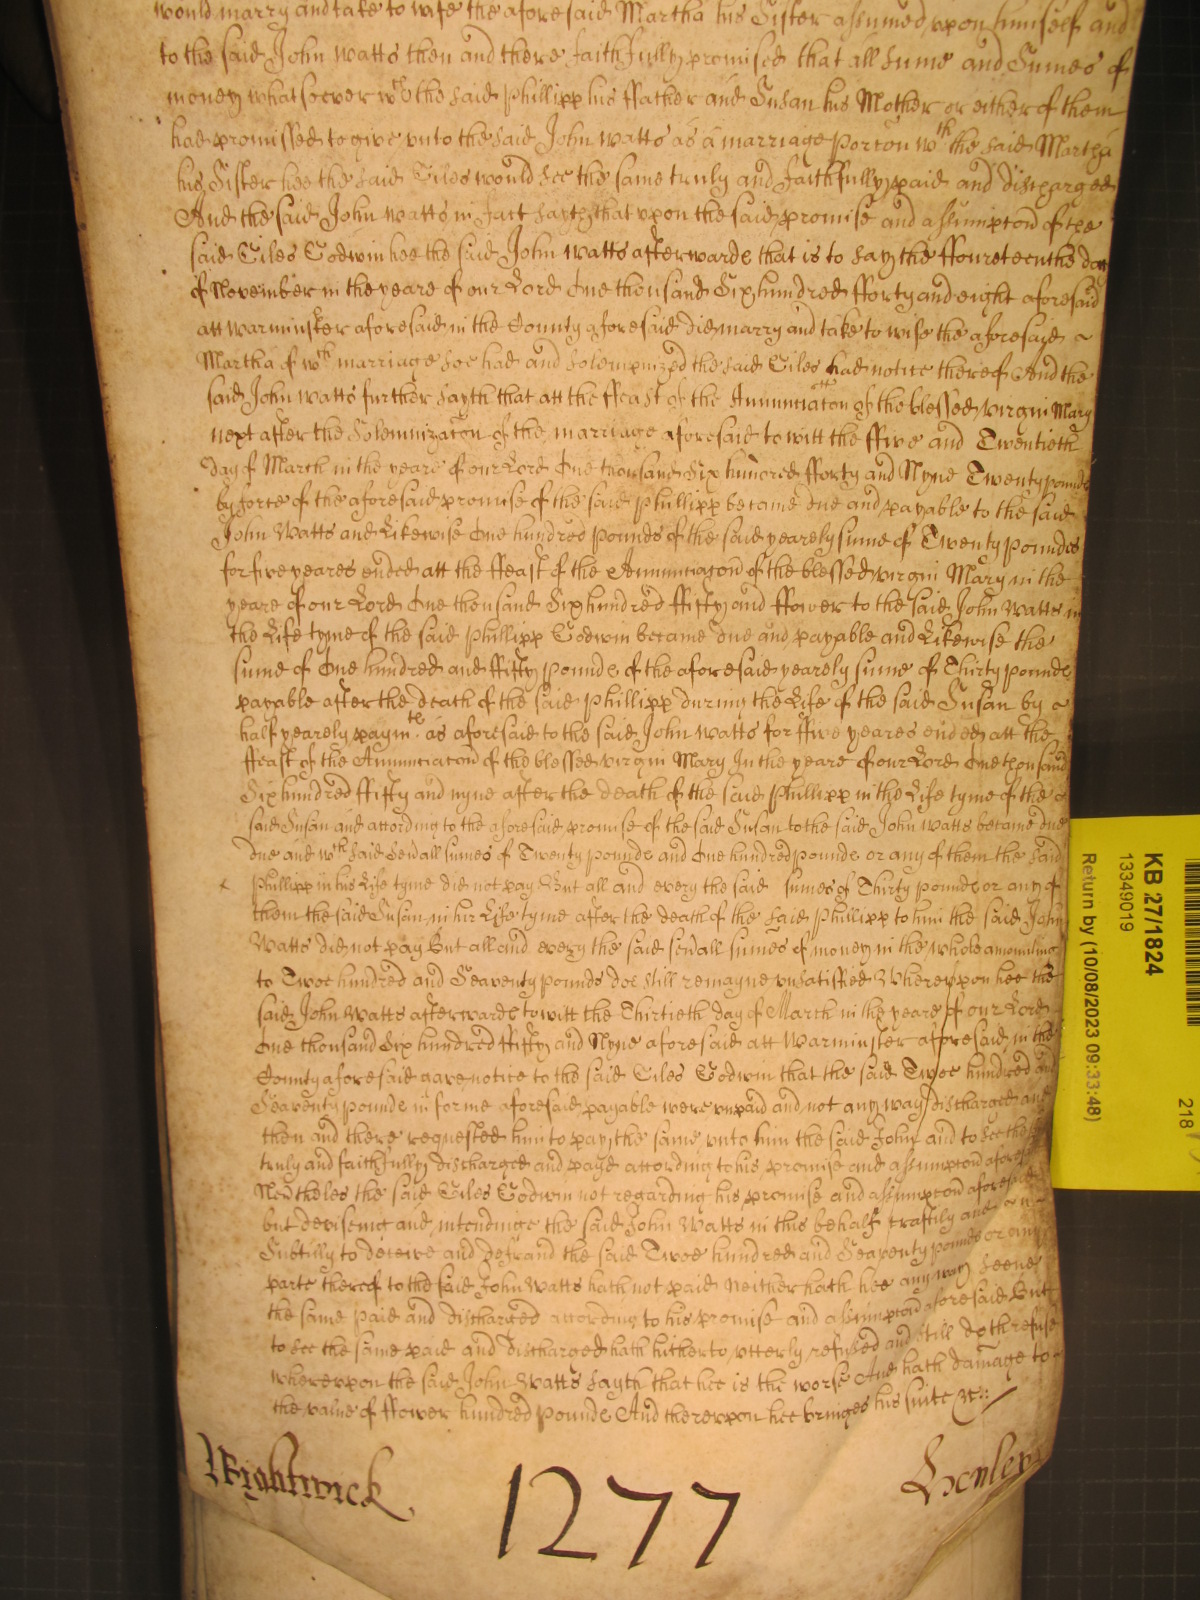 would marry and take to wife the aforesaid Martha his Sister assumed upon himself and
to the said John Watts then and there faithfully promised that all sume and Sumes of
money whatsoever wch the said Phillipp his ffather and Susan his Mother or either of them
had promissed to give unto the said John Watts as a marriage Porcon wth the said Martha
his Sister hee the said Giles would see the same truly and faithfully paid and discharged
And the said John Watts in fact sayth that upon the said promise and assumpcon of the
said Giles Godwin hee the said John Watts afterwards that is to say the ffoureteenthe day
of November in the yeare of our Lord One thousand Six hundred fforty and eight aforesaid
att Warminster aforesaid in the County aforesaid did marry and take to wife the aforesaid
Martha of wch marriage soe had and solempnized the said Giles had notice thereof And the
said John Watts further sayth that att the ffeast of the Annunciacon of the blessed virgin Mary
next after the Solemnizacon of the marriage aforesaid to witt the ffive and Twentieth
day of March in the yeare of our Lord One thousand Six hundred fforty and Nyne Twenty pounds
by force of the aforesaid promise of the said Phillipp became due and payable to the said
John Watts and Likewise One hundred pounds of the said yearely sume of Twenty poundes
for five yeares ended att the ffeast of the Annunciacon of the blessed virgin Mary in the
yeare of our Lord One thousand Six hundred ffifty and ffower to the said John Watts in
the Life tyme of the said Phillipp Godwin became due and payable and Likewise the
sume of One hundred and ffifty pounds of the aforesaid yearely sume of Thirty pounds
payable after the death of the said Phillipp during the Life of the said Susan by
half yearely paymts as aforesaid to the said John Watts for ffive yeares ended att the
ffeast of the Annunciacon of the blessed virgin Mary In the yeare of our Lord One thousand
Six hundred ffifty and nyne after the death of the said Phillipp in the Life tyme of the
said Susan and according to the aforesaid promise of the said Susan to the said John Watts became due
due and wch said sevall sumes of Twenty pounds and One hundred pounds or any of them the said
Phillipp in his Life tyme did not pay But all and every the said sumes of Thirty pounds or any of
them the said Susan in hir Life tyme after the death of the said Phillipp to him the said John
Watts did not pay But all and every the said sevall sumes of money in the whole amounting
to Twoe hundred and Seaventy pounds doe still remayne unsatisfied Whereupon hee the
said John Watts afterwards to witt the Thirtieth day of March in the yeare of our Lord
One thousand Six hundred ffifty and Nyne aforesaid att Warminster aforesaid in the
County aforesaid gave notice to the said Giles Godwin that the said Twoe hundred and
Seaventy pounds in forme aforesaid payable were unpaid and not any way discharged and
then and there requested him to pay the same unto him the said John and to see the
truly and faithfully discharged and payd according to his promise and assumpcon aforesaid
Nevtheles the said Giles Godwin not regarding his promise and assumpcon aforesaid
but deviseing and intendinge the said John Watts in this behalf craftily and
Subtilly to deceive and defraud the said Twoe hundred and Seaventy pounds or any
parte thereof to the said John Watts hath not paid neither hath hee any way seene
the same paid and discharged according to his promise and assumpcon aforesaid But
to see the same paid and discharged hath hitherto utterly refused and still doth refuse
whereupon the said John Watts sayth that hee is the worse And hath damage to
the value of ffower hundred pounds And thereupon hee bringes his suite &c
Wightwick Henley
1277
KB 27/1824
13349019
Return by (10/08/2023 09:33:48)
218